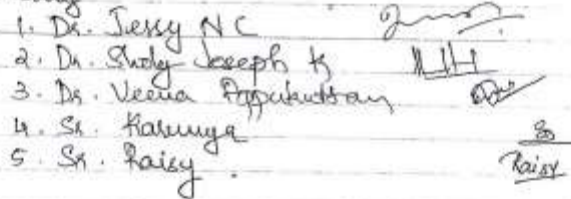 1. Dr. Jessy NC
2. Dr. Shidy Joseph K
3. Dr. Veena Appukuttan
4. Sr. Karunya
5. Sr. Raisy.
Raisy